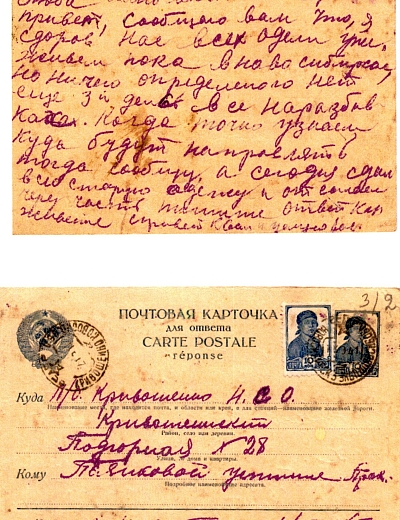 привет, сообщаю вам что, я
здоров нас всех одели уже,
живем пока в новосибирске,
но ни чего определеного нет
еще 3й день все наразбив
ках. Когда точно узнаем
куда будут направлять
тогда сообщу, а сегодня сдал
всю старую одежу и отсылаем
через часть пишите ответ как
живете с приветом к вам
3/2
ПОЧТОВАЯ КАРТОЧКА
для ответа
CARTE POSTALE
réponse
Куда п/о. Кривошеино Н.С.О.
Наименование места, где находится почта, и области или края, а для станций—наименование железной дороги.
Кривошеинский
Район, село или деревня.
Подгорная N 28
Улица, № дома и квартиры.
Кому Т. Янковой Устинье Прох.
Подробное наименование адресата.